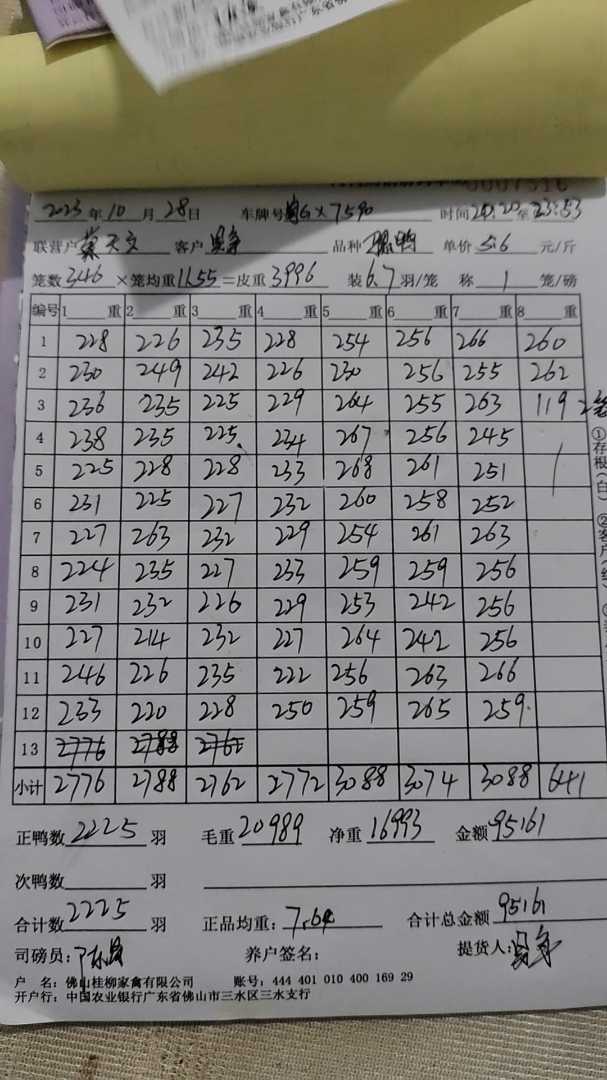 2023年10月28日 车牌号 G×7590 时间20:20至23:53
联营户 天文 客户 品种 鸭 单价5.6元/斤
笼数346×笼均重11.55=皮重3996 装6.7羽/笼 称1笼/磅
编号 1重 2重 3重 4重 5重 6重 7重 8重
1 228 226 235 228 254 256 266 260
2 230 249 242 226 230 256 255 262
3 236 235 225 229 264 255 263 119
4 238 235 225 234 267 256 245
5 225 228 228 233 268 261 251
6 231 225 227 232 260 258 252
7 227 263 232 229 254 261 263
8 224 235 227 233 259 259 256
9 231 232 226 229 253 242 256
10 227 214 232 227 264 242 256
11 246 226 235 222 256 263 266
12 233 220 228 250 259 265 259
13 2776 2788 2762
小计 2776 2788 2762 2772 3088 3074 3088 641
正鸭数2225羽 毛重20989 净重16993 金额95161
次鸭数 羽
合计数2225羽 正品均重:7.64 合计总金额95161
司磅员: 养户签名: 提货人:
户 名:佛山桂柳家禽有限公司 账号:444 401 010 400 169 29
开户行:中国农业银行广东省佛山市三水区三水支行
①存根(白)②客户(红)